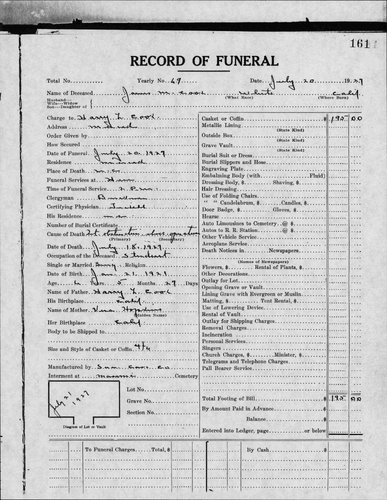 161
RECORD OF FUNERAL
Total No. Yearly No. 49 Date July 20 1927
Name of Deceased James M. Cool White Calif
Husband-Wife-Widow Son-Daughter of (What Race) (Where Born)
Charge to Harry L. Cool
Address
Order Given by
How Secured
Date of Funeral July 20, 1927
Residence
Place of Death
Funeral Services at
Time of Funeral Service 2 P.M.
Clergyman
Certifying Physician
His Residence
Number of Burial Certificate
Cause of Death
(Primary) (Secondary)
Date of Death July 18, 1927
Occupation of the Deceased Student
Single or Married Religion
Date of Birth Jan 21 1921
Age 6 Years 5 Months 27 Days
Name of Father Harry L. Cool
His Birthplace Calif
Name of Mother Hopkins
(Maiden Name)
Her Birthplace Calif
Body to be Shipped to
Size and Style of Casket or Coffin 4/6
Manufactured by
Interment at Masonic Cemetery
Lot No.
Grave No.
Section No.
July 21 1927
Diagram of Lot or Vault
Casket or Coffin 195 00
Metallic Lining
(State Kind)
Outside Box
(State Kind)
Grave Vault
(State Kind)
Burial Suit or Dress
Burial Slippers and Hose
Engraving Plate
Embalming Body (with Fluid)
Dressing Body, $ Shaving, $
Hair Dressing
Use of Folding Chairs
" " Candelabrum, $ Candles, $
Door Badge, $ Gloves, $
Hearse
Auto Limousines to Cemetery @ $
Autos to R. R. Station @ $
Other Vehicle Service
Aeroplane Service
Death Notices in Newspapers
(Names of Newspapers)
Flowers, $ Rental of Plants, $
Other Decorations
Outlay for Lot
Opening Grave or Vault
Lining Grave with Evergreen or Muslin
Matting, $ Tent Rental, $
Use of Lowering Device
Rental of Vault
Outlay for Shipping Charges
Removal Charges
Incineration
Personal Services
Singers
Church Charges, $ Minister, $
Telegrams and Telephone Charges
Pall Bearer Service
Total Footing of Bill 195 00
By Amount Paid in Advance
Balance
Entered into Ledger, page or below
To Funeral Charges, Total $ By Cash $